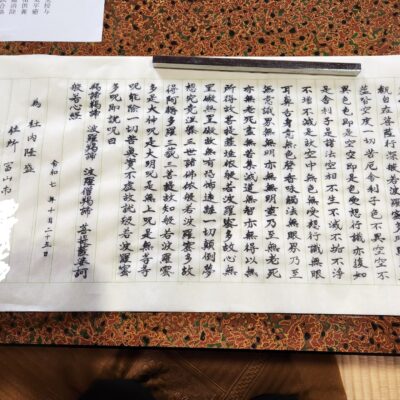 観自在菩薩行深
蘊皆空度一切苦厄舎利子色不異空空不
異色色即是空空即是色受想行識亦復如
是舎利子是諸法空相不生不滅不垢不浄
不増不減是故空中無色無受想行識無眼
耳鼻舌身意無色声香味触法無眼界乃至
無意識界無無明亦無無明尽乃至無老死
亦無老死尽無苦集滅道無智亦無得以無
所得故菩提薩埵依般若波羅蜜多故心無
罣礙無罣礙故無有恐怖遠離一切顛倒夢
想究竟涅槃三世諸仏依般若波羅蜜多故
得阿耨多羅三藐三菩提故知般若波羅蜜
多是大神呪是大明呪是無上呪是無等等
呪能除一切苦真実不虚故説般若波羅蜜
多呪即説呪曰
羯諦羯諦 波羅羯諦 波羅僧羯諦 菩提薩婆訶
般若心経
令和七年十月二十五日
為 社内隆盛
住所 富山市